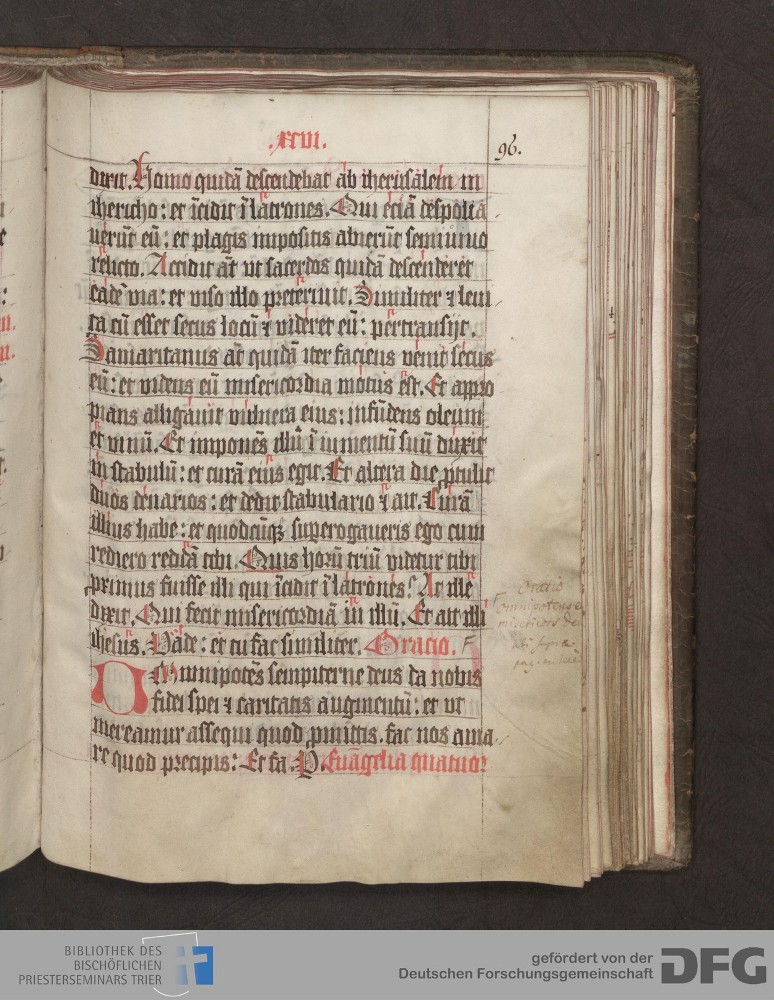 .xcvi.
96.
dixit. Homo quidā descendebat ab iherusalem in
ihericho: et īcidit ī latrones. Qui eciā despolia
uerūt eū: et plagis impositis abierūt semiuiuo
relicto. Accidit at̄ vt sacerdos quidā descenderet
eādē via: et viso illo preteriuit. Similiter ⁊ leui
ta cū esset secus locū ⁊ videret eū: pertransijt.
Samaritanus at̄ quidā iter faciens venit secus
eū: et videns eū misericordia motus est. Et appro
pians alligauit vulnera eius: infūdens oleum
et vinū. Et imponēs illū ī iumentū suū duxit
in stabulū: et curā eius egit. Et altera die ꝓtulit
duos denarios: et dedit stabulario ⁊ ait. Curā
illius habe: et quodcūqꝫ superogaueris ego cum
rediero reddā tibi. Quis horū triū videtur tibi
primus fuisse illi qui īcidit ī latrones? At ille
dixit. Qui fecit misericordiā in illū. Et ait illi
ihesus. Vade: et tu fac similiter. Oracio. F
Omnipotēs sempiterne deus da nobis
fidei spei ⁊ caritatis augmentū: et vt
mereamur assequi quod ꝓmittis. fac nos ama
re quod precipis: Et fa. P. Euāgelia quatuor
Oratio
F omnipotens e
misericors de
supra
BIBLIOTHEK DES
BISCHÖFLICHEN
PRIESTERSEMINARS TRIER
gefördert von der
Deutschen Forschungsgemeinschaft DFG